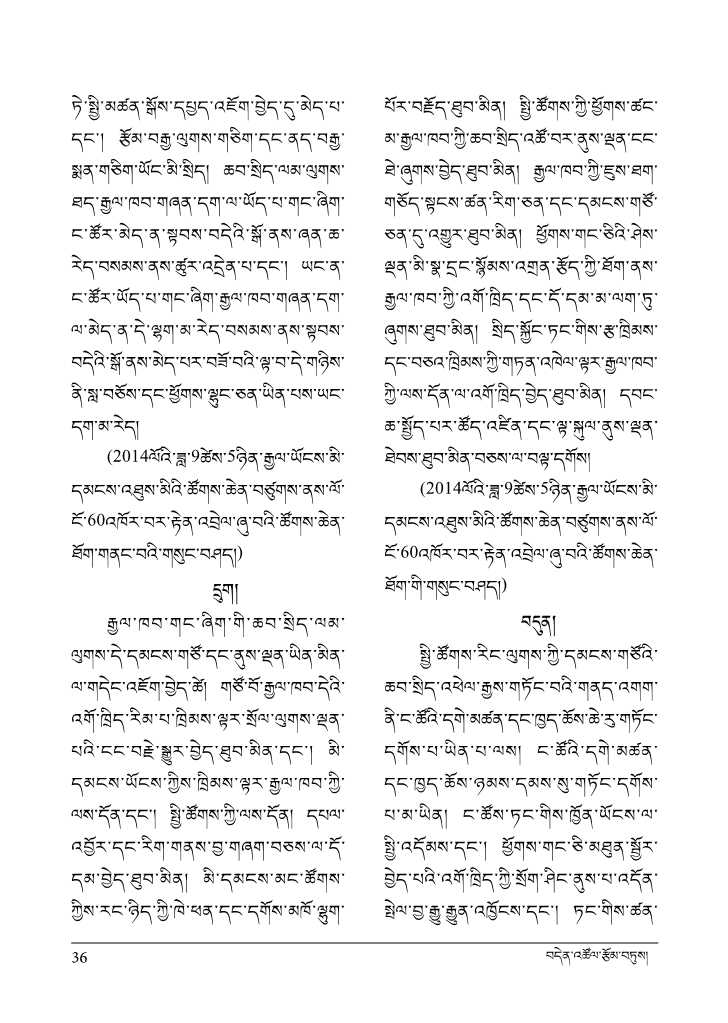 ཏེ་སྤྱི་མཚན་སྒོས་དཔྱད་འཇོག་བྱེད་དུ་མེད་པ་
དང་། རྩོམ་བརྒྱ་ལུགས་གཅིག་དང་ནད་བརྒྱ་
སྨན་གཅིག་ཡོང་མི་སྲིད། ཆབ་སྲིད་ལམ་ལུགས་
ཐད་རྒྱལ་ཁབ་གཞན་དག་ལ་ཡོད་པ་གང་ཞིག་
ང་ཚོར་མེད་ན་སྟབས་བདེའི་སྒོ་ནས་ཞན་ཆ་
རེད་བསམས་ནས་ཚུར་འདྲེན་པ་དང་། ཡང་ན་
ང་ཚོར་ཡོད་པ་གང་ཞིག་རྒྱལ་ཁབ་གཞན་དག་
ལ་མེད་ན་དེ་ལྷག་མ་རེད་བསམས་ནས་སྟབས་
བདེའི་སྒོ་ནས་མེད་པར་བཟོ་བའི་ལྟ་བ་དེ་གཉིས་
ནི་སླ་བཅོས་དང་ཕྱོགས་ལྷུང་ཅན་ཡིན་པས་ཡང་
དག་མ་རེད།
(2014ལོའི་ཟླ་9ཚེས་5ཉིན་རྒྱལ་ཡོངས་མི་
དམངས་འཐུས་མིའི་ཚོགས་ཆེན་བཙུགས་ནས་ལོ་
ངོ་60འཁོར་བར་རྟེན་འབྲེལ་ཞུ་བའི་ཚོགས་ཆེན་
ཐོག་གནང་བའི་གསུང་བཤད།)
དྲུག།
རྒྱལ་ཁབ་གང་ཞིག་གི་ཆབ་སྲིད་ལམ་
ལུགས་དེ་དམངས་གཙོ་དང་ནུས་ལྡན་ཡིན་མིན་
ལ་གདེང་འཇོག་བྱེད་ཚེ། གཙོ་བོ་རྒྱལ་ཁབ་དེའི་
འགོ་ཁྲིད་རིམ་པ་ཁྲིམས་ལྟར་སྲོལ་ལུགས་ལྡན་
པའི་ངང་བརྗེ་སྒྱུར་བྱེད་ཐུབ་མིན་དང་། མི་
དམངས་ཡོངས་ཀྱིས་ཁྲིམས་ལྟར་རྒྱལ་ཁབ་ཀྱི་
ལས་དོན་དང་། སྤྱི་ཚོགས་ཀྱི་ལས་དོན། དཔལ་
འབྱོར་དང་རིག་གནས་བྱ་གཞག་བཅས་ལ་དོ་
དམ་བྱེད་ཐུབ་མིན། མི་དམངས་མང་ཚོགས་
ཀྱིས་རང་ཉིད་ཀྱི་ཁེ་ཕན་དང་དགོས་མཁོ་ལྷུག་
པོར་བརྗོད་ཐུབ་མིན། སྤྱི་ཚོགས་ཀྱི་ཕྱོགས་ཚང་
མ་རྒྱལ་ཁབ་ཀྱི་ཆབ་སྲིད་འཚོ་བར་ནུས་ལྡན་ངང་
ཐེ་ཞུགས་བྱེད་ཐུབ་མིན། རྒྱལ་ཁབ་ཀྱི་ཇུས་ཐག་
གཅོད་སྟངས་ཚན་རིག་ཅན་དང་དམངས་གཙོ་
ཅན་དུ་འགྱུར་ཐུབ་མིན། ཕྱོགས་གང་ཅིའི་ཤེས་
ལྡན་མི་སྣ་དྲང་སྙོམས་འགྲན་རྩོད་ཀྱི་ཐོག་ནས་
རྒྱལ་ཁབ་ཀྱི་འགོ་ཁྲིད་དང་དོ་དམ་མ་ལག་ཏུ་
ཞུགས་ཐུབ་མིན། སྲིད་སྐྱོང་ཏང་གིས་རྩ་ཁྲིམས་
དང་བཅའ་ཁྲིམས་ཀྱི་གཏན་འཁེལ་ལྟར་རྒྱལ་ཁབ་
ཀྱི་ལས་དོན་ལ་འགོ་ཁྲིད་བྱེད་ཐུབ་མིན། དབང་
ཆ་སྤྱོད་པར་ཚོད་འཛིན་དང་ལྟ་སྐུལ་ནུས་ལྡན་
ཐེབས་ཐུབ་མིན་བཅས་ལ་བལྟ་དགོས།
(2014ལོའི་ཟླ་9ཚེས་5ཉིན་རྒྱལ་ཡོངས་མི་
དམངས་འཐུས་མིའི་ཚོགས་ཆེན་བཙུགས་ནས་ལོ་
ངོ་60འཁོར་བར་རྟེན་འབྲེལ་ཞུ་བའི་ཚོགས་ཆེན་
ཐོག་གི་གསུང་བཤད།)
བདུན།
སྤྱི་ཚོགས་རིང་ལུགས་ཀྱི་དམངས་གཙོའི་
ཆབ་སྲིད་འཕེལ་རྒྱས་གཏོང་བའི་གནད་འགག་
ནི་ང་ཚོའི་དགེ་མཚན་དང་ཁྱད་ཆོས་ཆེ་རུ་གཏོང་
དགོས་པ་ཡིན་པ་ལས། ང་ཚོའི་དགེ་མཚན་
དང་ཁྱད་ཆོས་ཉམས་དམས་སུ་གཏོང་དགོས་
པ་མ་ཡིན། ང་ཚོས་ཏང་གིས་ཁྱོན་ཡོངས་ལ་
སྤྱི་འདོམས་དང་། ཕྱོགས་གང་ཅི་མཐུན་སྦྱོར་
བྱེད་པའི་འགོ་ཁྲིད་ཀྱི་སྲོག་ཤིང་ནུས་པ་འདོན་
སྤེལ་བྱ་རྒྱུ་རྒྱུན་འཁྱོངས་དང་། ཏང་གིས་ཚན་
36
བདེན་འཚོལ་རྩོམ་བཏུས།